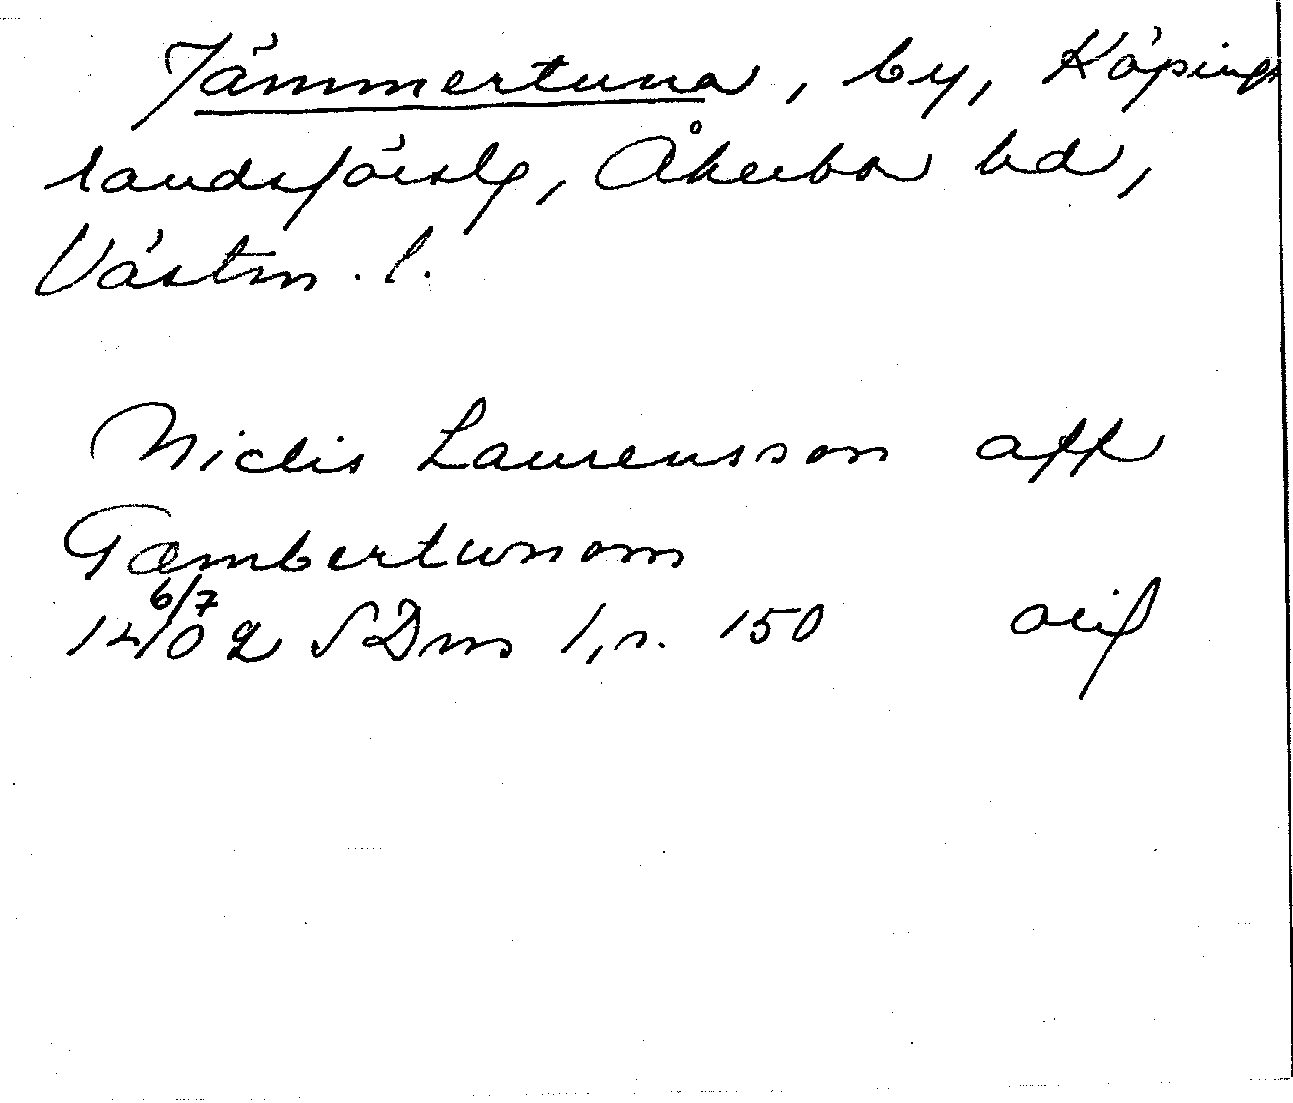 Jämmertuna, by, Köpings
landsförslg, Åkerbo hd,
Västm. l.
Niclis Laurensson aff
Gæmbertunom
6/7
1402 SDns 1, s. 150 orig